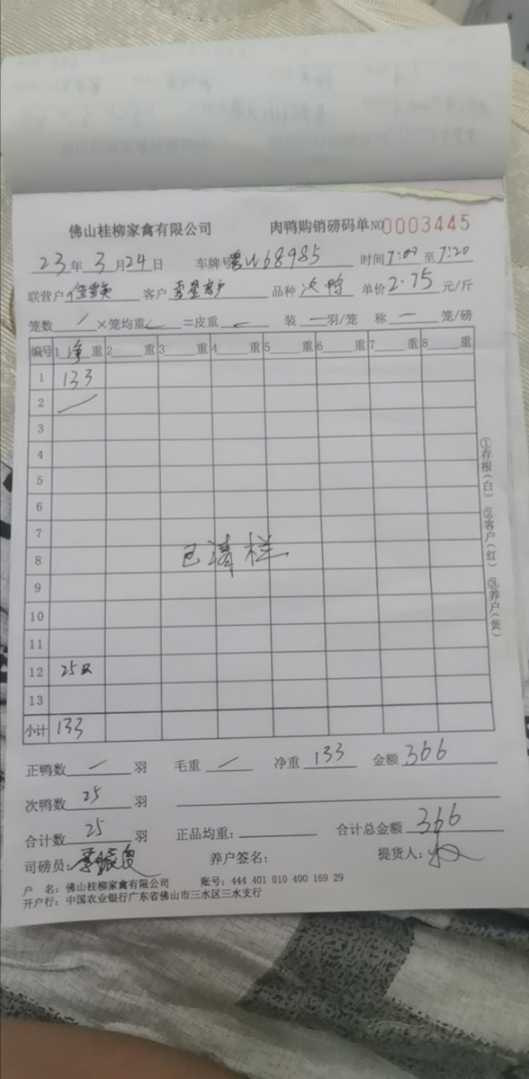 佛山桂柳家禽有限公司 肉鸭购销磅码单 NO 0003445
23年 3月24日 车牌号粤W68985 时间7:07至7:20
联营户 客户 品种 次鸭 单价 2.75 元/斤
笼数 / ×笼均重 =皮重 装 — 羽/笼 称 — 笼/磅
编号 1 净 重 2 重 3 重 4 重 5 重 6 重 7 重 8 重
1 133
2 /
3
4
5
6
7
8
已清栏
9
10
11
12 25只
13
小计 133
①存根(白) ②客户(红) ③养户(黄)
正鸭数 / 羽 毛重 / 净重 133 金额 366
次鸭数 25 羽
合计数 25 羽 正品均重: 合计总金额 366
司磅员: 养户签名: 提货人:
户 名: 佛山桂柳家禽有限公司 账号: 444 401 010 400 169 29
开户行: 中国农业银行广东省佛山市三水区三水支行